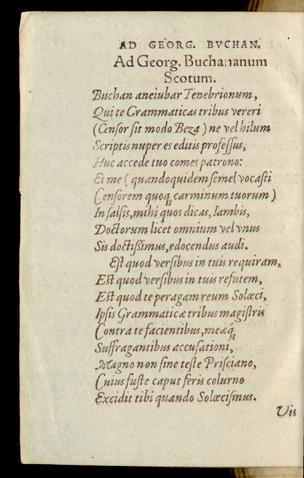 AD GEORG. BVCHAN.
Ad Georg. Buchananum
Scotum.
Buchananeiubar Tenebrionum,
Qui te Grammaticas tribus vereri
(Censor sit modo Beza) ne vel hilum
Scriptis nuper es editis professus,
Huc accede tuo comes patrono:
Et me (quandoquidem semel vocasti
Censorem quoq; carminum tuorum)
In salsis, mihi quos dicas, Iambis,
Doctorum licet omnium vel vnus
Sis doctißimus, edocendus audi.
Est quod versibus in tuis requiram,
Est quod versibus in tuis refutem,
Est quod te peragam reum Solœci,
Ipsis Grammaticæ tribus magistris
Contra te facientibus, meaq́;
Suffragantibus accusationi,
Magno non sine teste Prisciano,
Cuius fuste caput feris colurno
Excidit tibi quando Solœcismus.
Vis